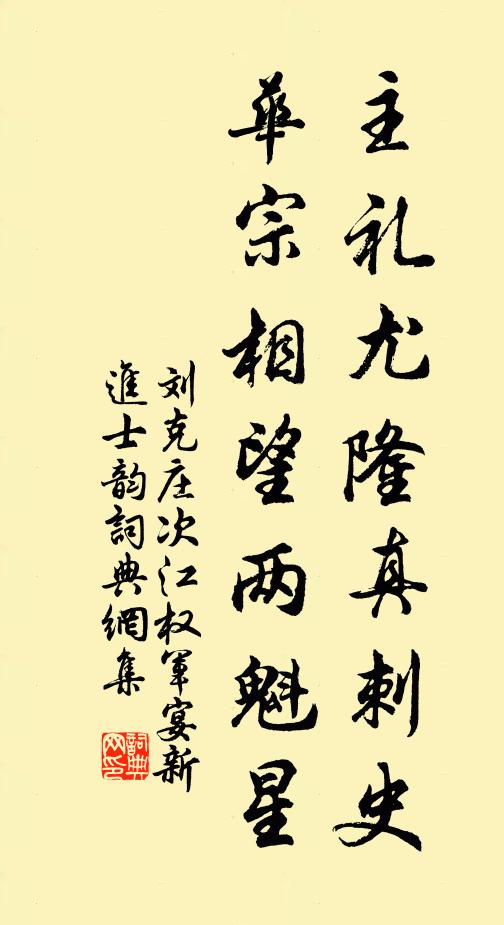 主礼尤隆真刺史
华宗相望两魁星
刘克庄次江权军宴新
進士韵詞典網集
詞典网印